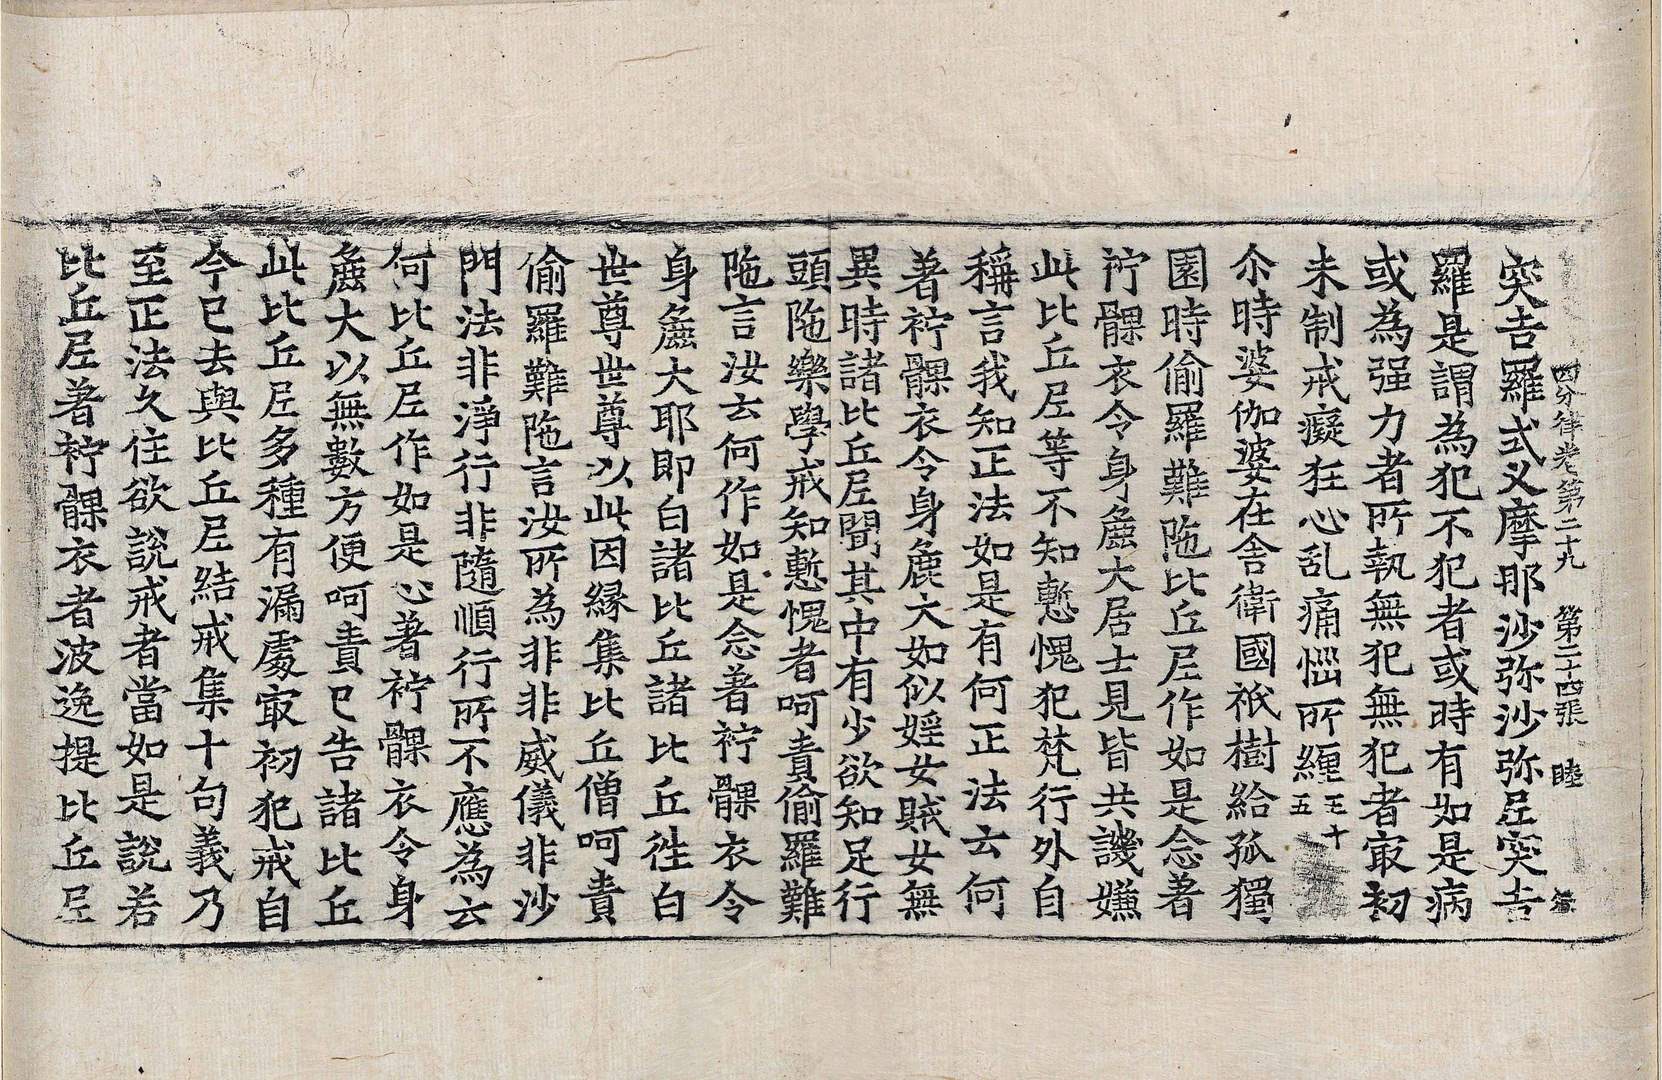 四分律卷第二十九 第二十四張 睦
突吉羅式叉摩那沙弥沙弥尼突吉
羅是謂為犯不犯者或時有如是病
或為强力者所執無犯無犯者冣初
未制戒癡狂心乱痛惱所纏五十五
尒時婆伽婆在舍衛國祇樹給孤獨
園時偷羅難陁比丘尼作如是念著
袸髁衣令身麁大居士見皆共譏嫌
此比丘尼等不知慙愧犯梵行外自
稱言我知正法如是有何正法云何
著袸髁衣令身麁大如似婬女賊女無
異時諸比丘尼聞其中有少欲知足行
頭陁樂學戒知慙愧者呵責偷羅難
陁言汝云何作如是念著袸髁衣令
身麁大耶即白諸比丘諸比丘徃白
世尊世尊以此因緣集比丘僧呵責
偷羅難陁言汝所為非非威儀非沙
門法非淨行非隨順行所不應為云
何比丘尼作如是心著袸髁衣令身
麁大以無數方便呵責已告諸比丘
此比丘尼多種有漏處冣初犯戒自
今已去與比丘尼結戒集十句義乃
至正法久住欲說戒者當如是說若
比丘尼著袸髁衣者波逸提比丘尼